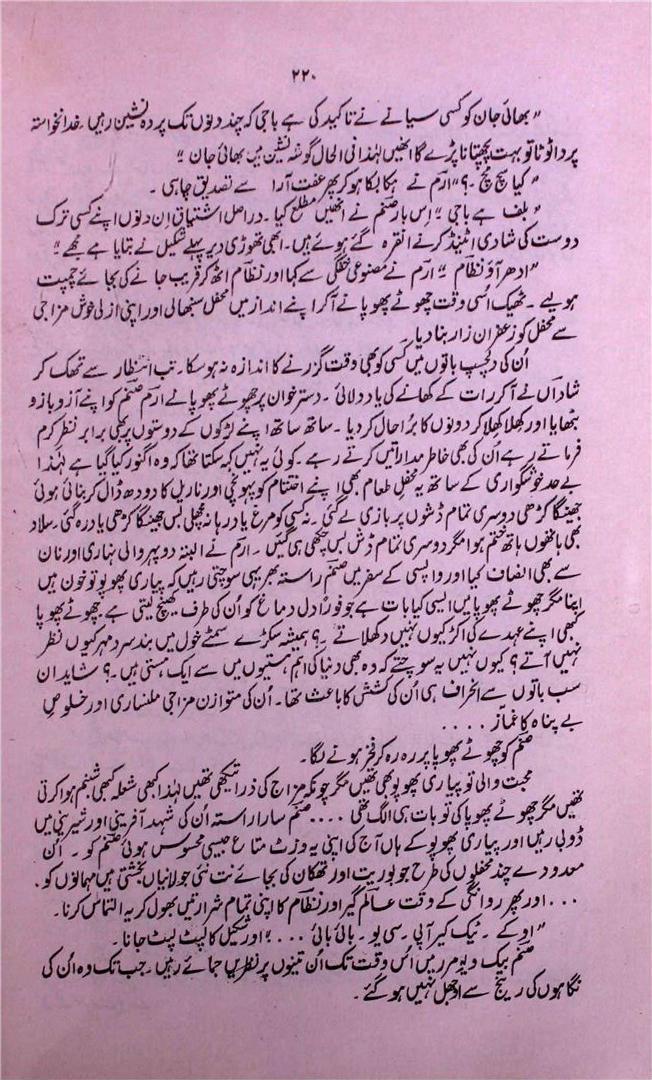 ۲۲۰
"بھائی جان کو کسی سیانے نے تاکید کی ہے باجی کہ چند دنوں تک پردہ نشین رہیں۔ خدانخواستہ
پردا ٹوٹا تو بہت پچھتانا پڑے گا انھیں لہٰذا فی الحال گوشہ نشین ہیں بھائی جان"
"کیا سچ مچ۔؟" ارم نے ہکا بکا ہو کر پھر عفت آرا سے تصدیق چاہی۔
"بلف ہے باجی" اس بار صنم نے انھیں مطلع کیا۔ دراصل اشتیاق ان دنوں اپنے کسی ترک
دوست کی شادی اٹینڈ کرنے انقرہ گئے ہوئے ہیں۔ ابھی تھوڑی دیر پہلے شکیل نے بتایا ہے مجھے"
"ادھر آؤ نظام" ارم نے مصنوعی خفگی سے کہا اور نظام اٹھ کر قریب جانے کی بجائے چمپت
ہو لیے۔ ٹھیک اُسی وقت چھوٹے پھوپا نے آ کر اپنے انداز میں محفل سنبھالی اور اپنی ازلی خوش مزاجی
سے محفل کو زعفران زار بنا دیا۔
اُن کی دلچسپ باتوں میں کسی کو بھی وقت گزرنے کا اندازہ نہ ہو سکا۔ تب انتظار سے تھک کر
شاداں نے آ کر رات کے کھانے کی یاد دلائی۔ دسترخوان پر چھوٹے پھوپا نے ارم صنم کو اپنے آزو بازو
بٹھایا اور کھلا کھلا کر دونوں کا بُرا حال کر دیا۔ ساتھ ساتھ اپنے لڑکوں کے دوستوں پر بھی برابر نظر کرم
فرماتے رہے اُن کی بھی خاطر مداراتیں کرتے رہے۔ کوئی یہ نہیں کہہ سکتا تھا کہ وہ اگنور کیا گیا ہے لہٰذا
بے حد خوشگواری کے ساتھ یہ محفلِ طعام بھی اپنے اختتام کو پہونچی اور ناریل کا دودھ ڈال کر بنائی ہوئی
جھینگا کڑھی دوسری تمام ڈشوں پر بازی لے گئی۔ نہ کسی کو مرغ یاد رہا نہ مچھلی بس جھینگا کڑھی یاد رہ گئی۔ سلاد
بھی ہاتھوں ہاتھ ختم ہوا مگر دوسری تمام ڈش بس چکھی ہی گئیں۔ ارم نے البتہ دوپہر والی نہاری اور نان
سے بھی انصاف کیا اور واپسی کے سفر میں صنم راستہ بھر یہی سوچتی رہیں کہ پیاری پھوپو تو خون ہیں
اپنا مگر چھوٹے پھوپا میں ایسی کیا بات ہے جو فوراً دل دماغ کو اُن کی طرف کھینچ لیتی ہے۔ چھوٹے پھوپا
کبھی اپنے عہدے کی اکڑ کیوں نہیں دکھلاتے۔؟ ہمیشہ سکڑے سمٹے خول میں بند سرد مہر کیوں نظر
نہیں آتے؟ کیوں نہیں یہ سوچتے کہ وہ بھی دنیا کی اہم ہستیوں میں سے ایک ہستی ہیں۔؟ شاید ان
سب باتوں سے انحراف ہی اُن کی کشش کا باعث تھا۔ اُن کی متوازن مزاجی ملنساری اور خلوصِ
بے پناہ کا غماز۔۔۔۔
صنم کو چھوٹے پھوپا پر رہ رہ کر فخر ہونے لگا۔
محبت والی تو پیاری پھوپو بھی تھیں مگر چونکہ مزاج کی ذرا تیکھی تھیں لہٰذا کبھی شعلہ کبھی شبنم ہوا کرتی
تھیں مگر چھوٹے پھوپا کی تو بات ہی الگ تھی۔۔۔۔ صنم سارا راستہ اُن کی شہد آفرینی اور شیرینی میں
ڈوبی رہیں اور پیاری پھوپو کے ہاں آج کی اپنی یہ وزٹ متاع جیسی محسوس ہوئی صنم کو۔ اُن
معدودے چند محفلوں کی طرح جو بوریت اور تھکان کی بجائے نت نئی جولانیاں بخشتی ہیں مہمانوں کو۔
۔۔۔ اور پھر روانگی کے وقت عالم گیر اور نظام کا اپنی تمام شرارتیں بھول کر یہ التماس کرنا۔
"اوکے۔ ٹیک کیر آپی۔ سی یو۔ بائی بائی۔۔۔" اور شکیل کا لپٹ لپٹ جانا۔
صنم بیک ویو مرر میں اُس وقت تک اُن تینوں پر نظریں جمائے رہیں۔ جب تک وہ اُن کی
نگاہوں کی رینج سے اوجھل نہیں ہو گئے۔